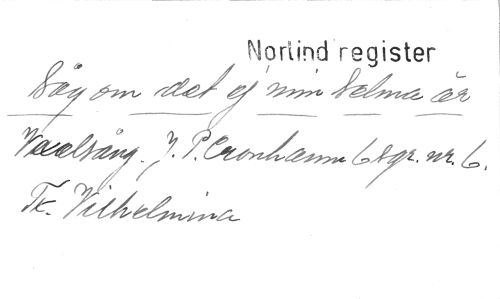 Norlind register
Säg om det ej min Selma är
Vaxelsång. J. P. Cronhamn 6 sgr. nr. 6.
Tr. Vilhelmina